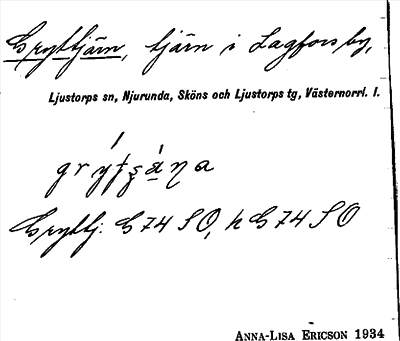 Gryttjärn, tjärn i Lagfors by,
Ljustorps sn, Njurunda, Sköns och Ljustorps tg, Västernorrl. l.
Gryttj. G 74 SO, h G 74 SO
ANNA-LISA ERICSON 1934